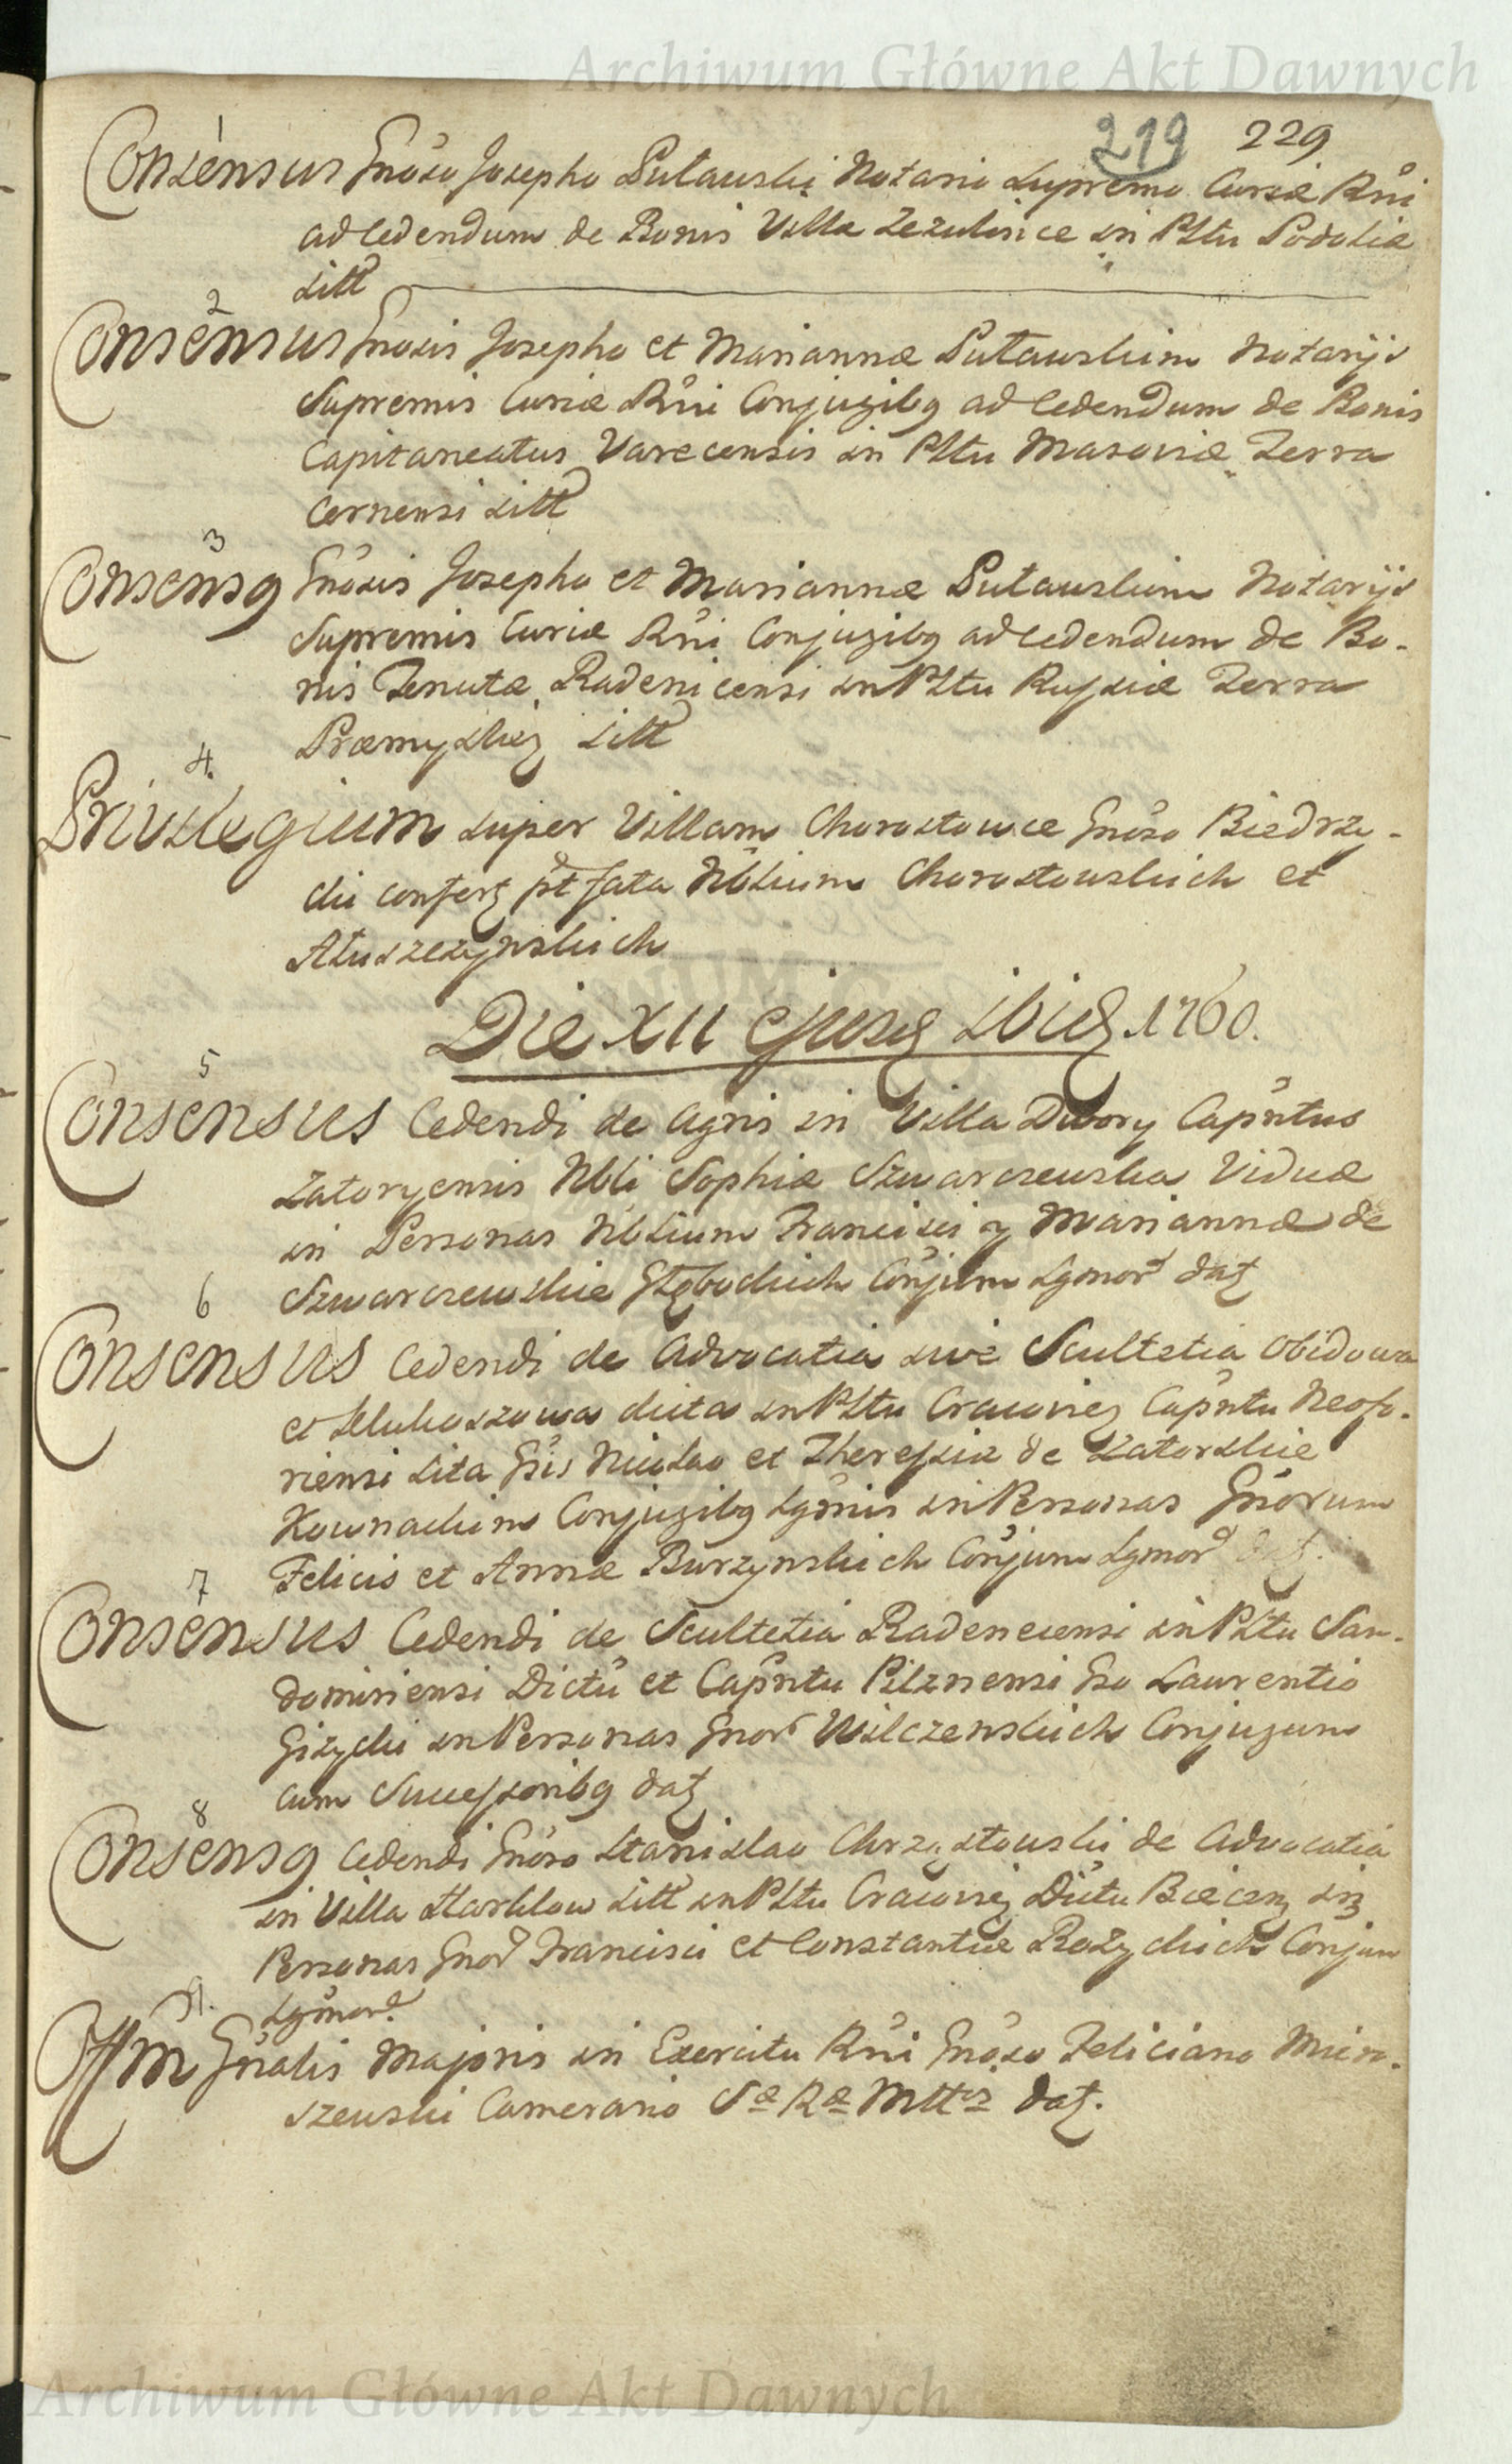 Archiwum Główne Akt Dawnych
219 229
1
Consensus Gnoso Josepho Pułauski Notario Supremo Curiæ Rni
ad cedendum de Bonis Villa Zezulince in Pltu Podoliæ
Sitt
2
Consensus Gnosis Josepho et Mariannæ Pułauskim Notarijs
Supremis Curiæ Rni Conjugibg ad cedendum de Bonis
Capitaneatus Varecensis in Pltu Masoviæ Terra
Cernensi Sitt
3
Consensg Gnosis Josepho et Mariannæ Pułauskim Notarijs
Supremis Curiæ Rni Conjugibg ad cedendum de Bo-
nis Tenutæ Radenicensi in Pltu Russiæ Terra
Præmysliẽ Sitt
4.
Privilegium super Villam Chorostowce Gnoso Biedrzy-
cki confert pt fata Nblium Chorostouskich et
Atuszczynskich
Die XII ejusd ibid. 1760.
5
Consensus Cedendi de Agris in Villa Dwory Capntus
Zatoryensis Nbli Sophiæ Szwarczewska Viduæ
in Personas Nblium Francisci et Mariannæ de
Szwarczewskie Głębockich Conjum Sgmor dat
6
Consensus Cedendi de Advocatia sive Scultetia Obidowa
et Klukoszowa dicta in Pltu Cracovieñ Capntu Neofo-
riensi Sita Gsis Nicolao et Theressiæ de Zatorskie
Kownackim Conjugibg Sgmis in Personas Gnorum
Felicis et Annæ Burzynskich Conjum Sgmor dat.
7
Consensus Cedendi de Scultetia Radenciensi in Pltu San-
domiriensi Dictu et Capntu Pilznensi Gso Laurentio
Giżycki in Personas Gnor Wilczenskich Conjugum
cum Successoribg dat
8
Consensg Cedendi Gnoso Stanislao Chrząstouski de Advocatia
in Villa Harklow Sitt in Pltu Cracovień Dictu Biecen in
Personas Gnor Francisci et Constantiæ Rożyckich Conjum
Sgmor.
9.
Offm Gnralis Majoris in Exercitu Rni Gnoso Feliciano Miero-
szeuski Camerario Sæ Ræ Mttis dat.
Archiwum Główne Akt Dawnych